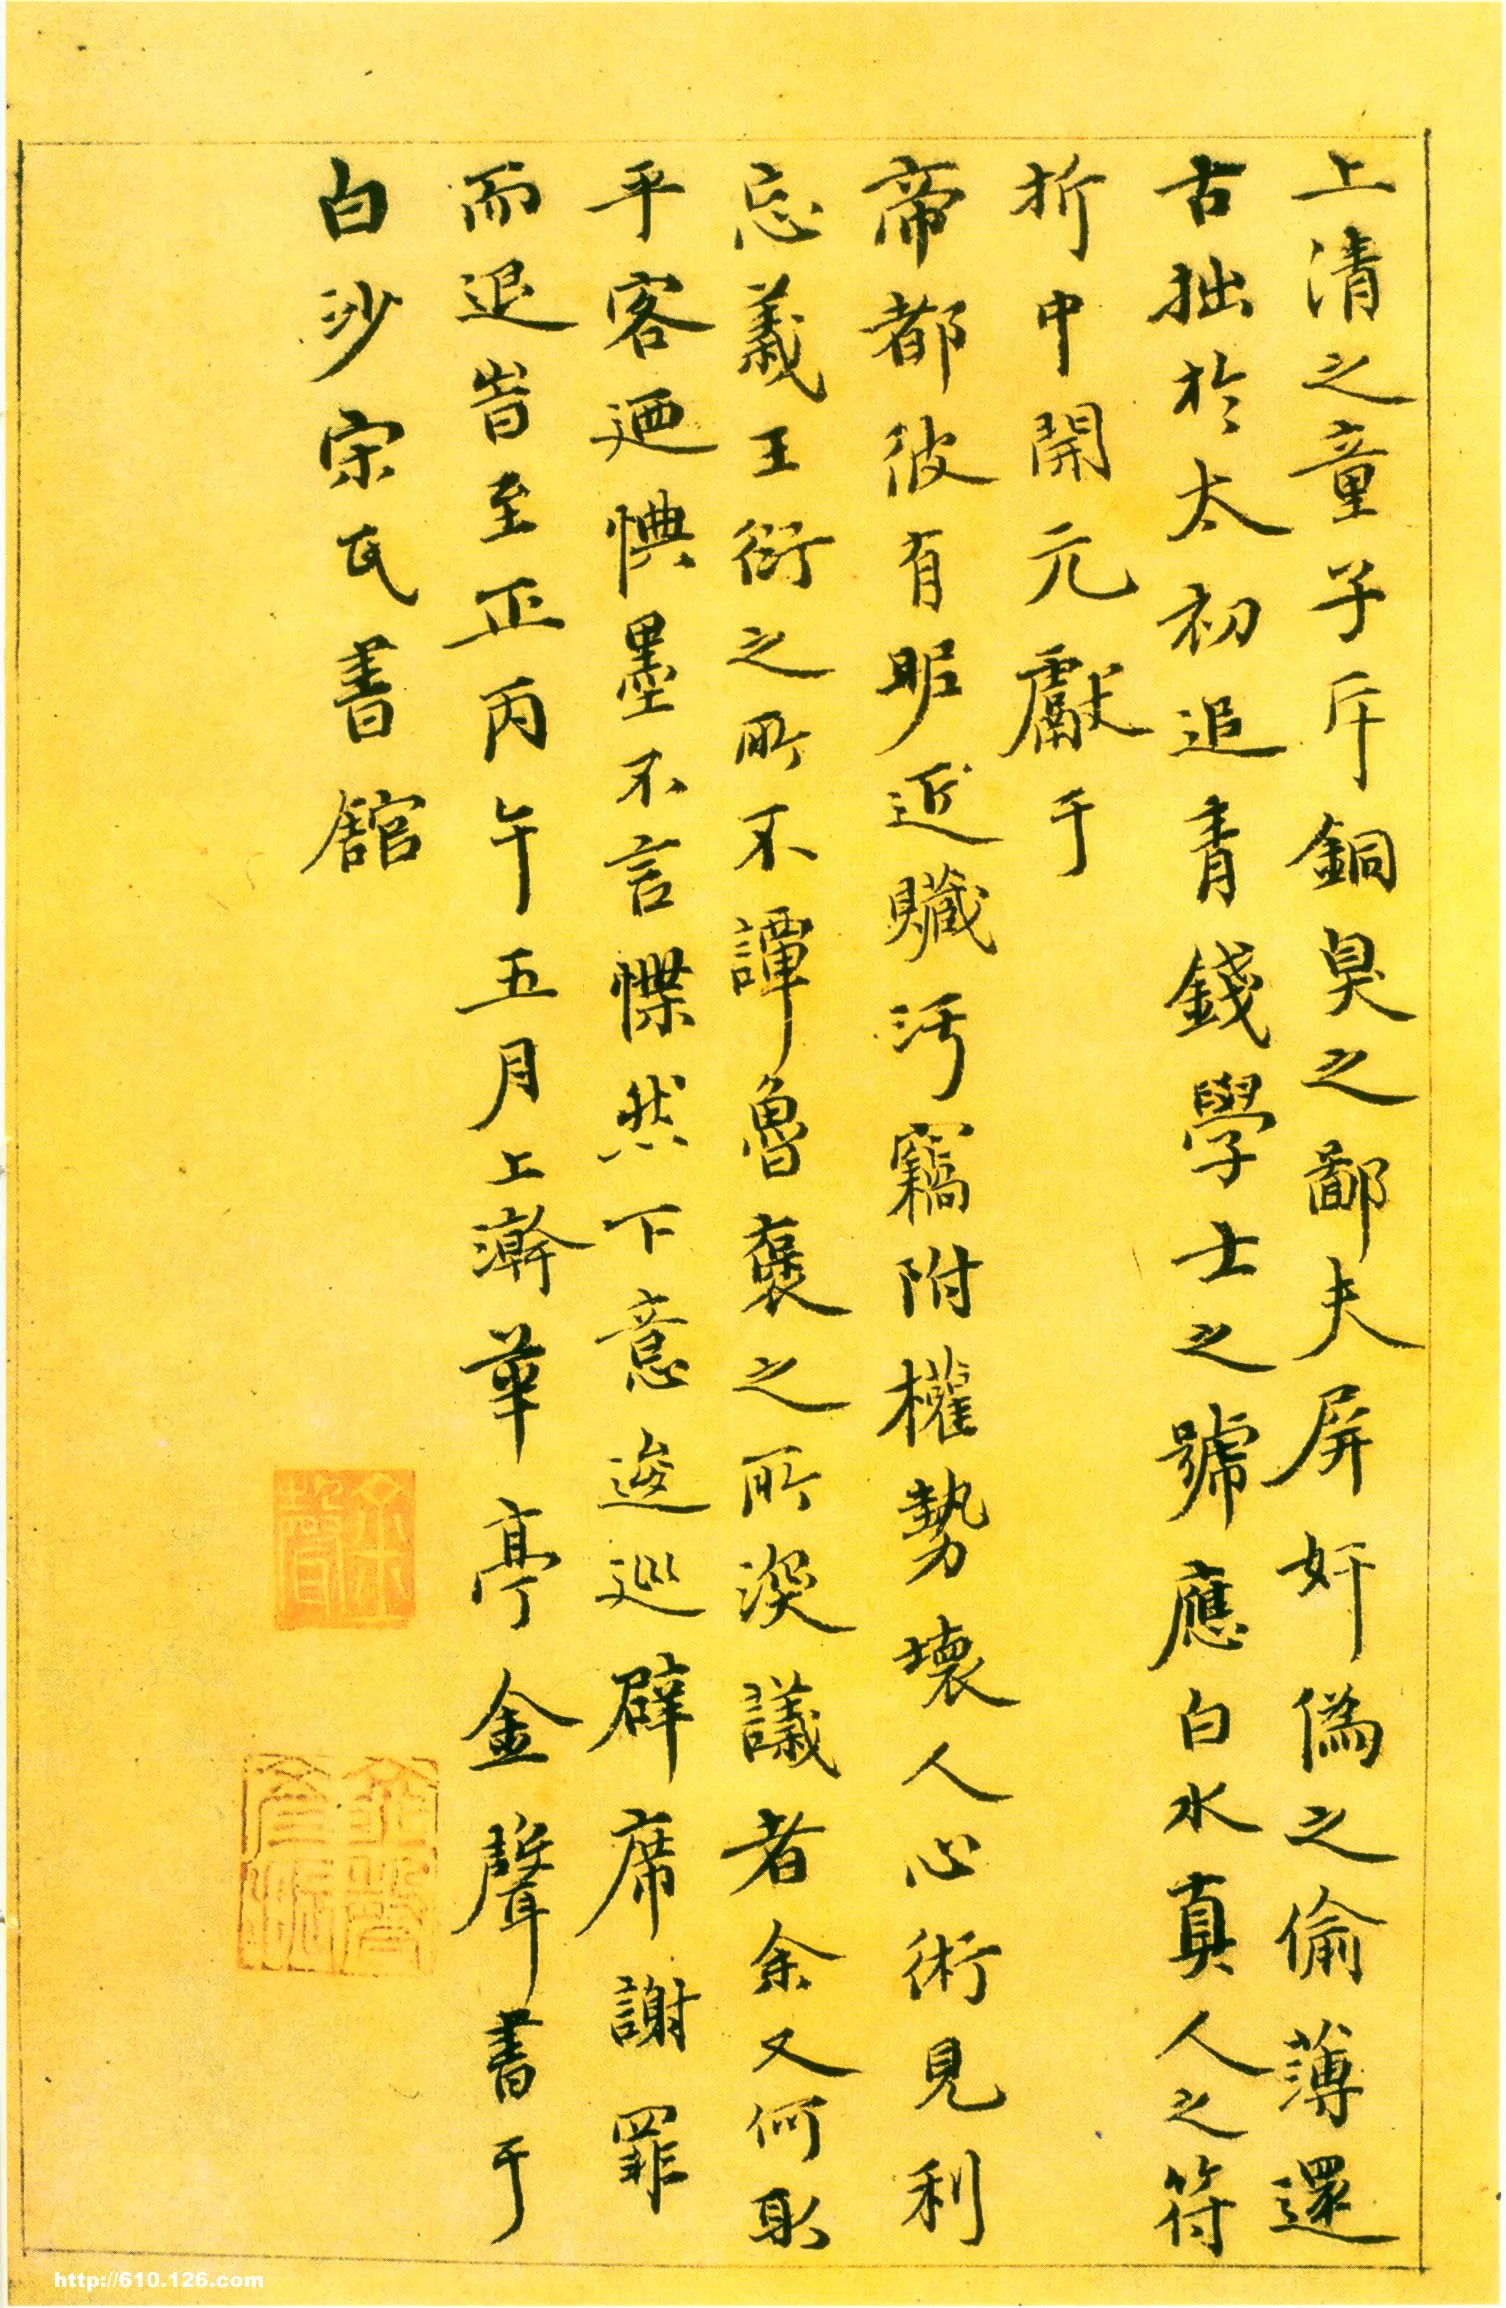 上清之童子斥銅臭之鄙夫屏奸僞之偷薄還
古拙於太初追青錢學士之號應白水真人之符
折中開元獻于
帝都彼有昵近贓汚竊附權勢壞人心術見利
忘義王衍之所不譚魯褒之所深議者余又何取
乎客迺惧墨不言惵然下意逡巡辟席謝罪
而退旹至正丙午五月上澣華亭金聲書于
白沙宗氏書舘
http://610.126.com